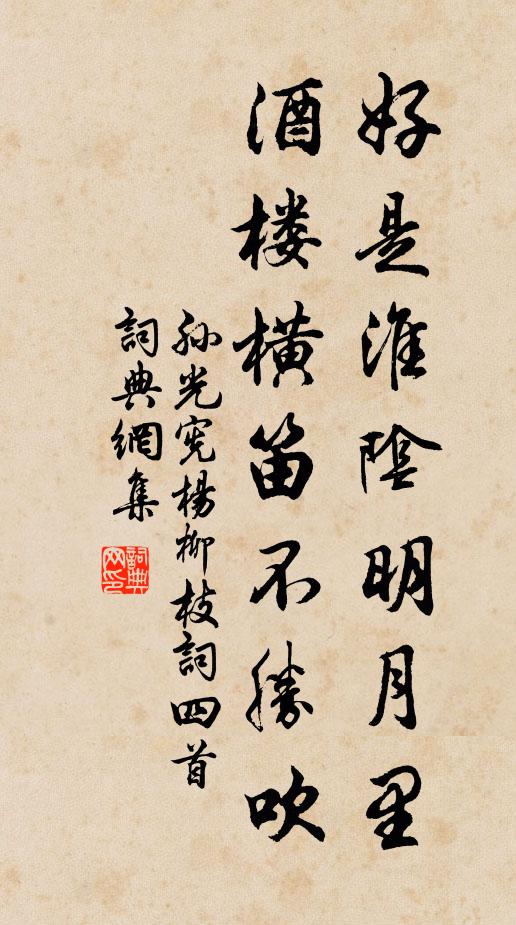 好是淮陰明月里
酒楼橫笛不勝吹
孫光宪楊柳枝詞四首
詞典網集
詞典网印